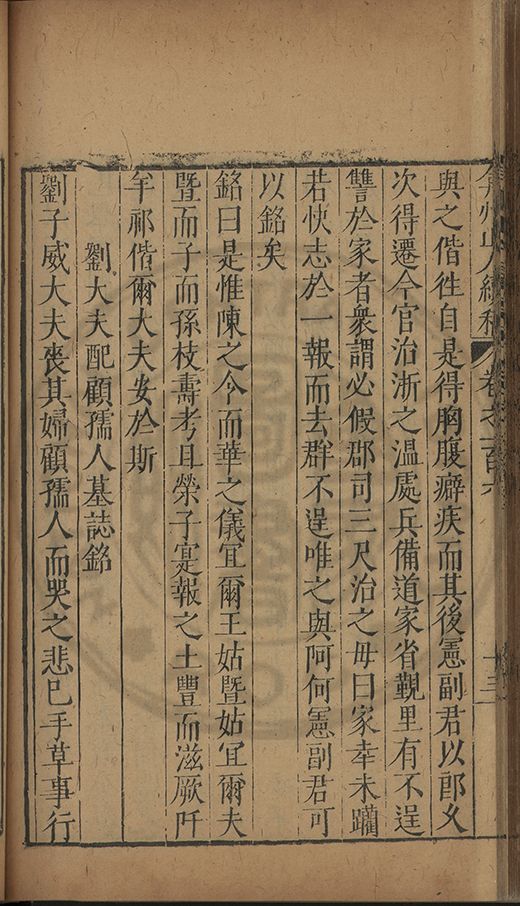 弇州山人續稿 卷之一百六 十三
與之偕徃自是得胸腹癖疾而其後憲副君以郎久
次得遷今官治浙之温處兵備道家省覲里有不逞
讐於家者衆謂必假郡司三尺治之毋曰家幸未躪
若快志於一報而去群不逞唯之與阿何憲副君可
以銘矣
銘曰是惟陳之令而華之儀宜爾王姑曁姑宜爾夫
曁而子而孫枝壽考且榮子寔報之土豐而滋厥阡
年祁偕爾大夫安於斯
劉大夫配顧孺人墓誌銘
劉子威大夫喪其婦顧孺人而哭之悲已手草事行